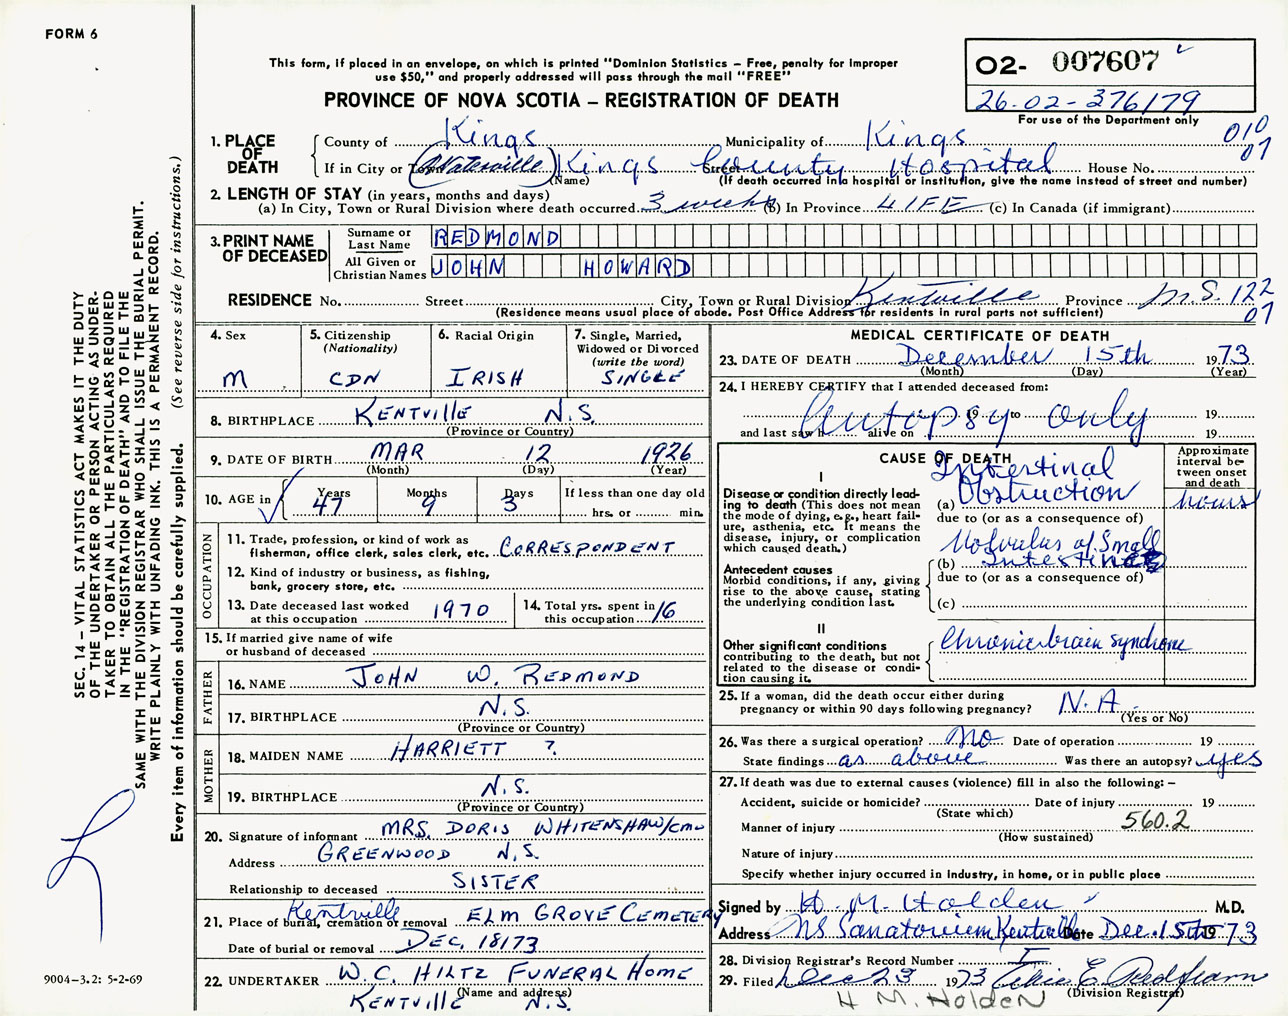 FORM 6
This form, if placed in an envelope, on which is printed "Dominion Statistics – Free, penalty for improper
use $50," and properly addressed will pass through the mail "FREE"
O2- 007607
26-02-376179
For use of the Department only
PROVINCE OF NOVA SCOTIA – REGISTRATION OF DEATH
010
07
1. PLACE OF DEATH
County of Kings Municipality of Kings
If in City or Town (Waterville) Kings County Hospital Street House No.
(Name) (If death occurred in a hospital or institution, give the name instead of street and number)
2. LENGTH OF STAY (in years, months and days)
(a) In City, Town or Rural Division where death occurred 3 weeks (b) In Province LIFE (c) In Canada (if immigrant)
3. PRINT NAME OF DECEASED
Surname or Last Name REDMOND
All Given or Christian Names JOHN HOWARD
RESIDENCE No. Street City, Town or Rural Division Kentville Province N.S. 122
07
(Residence means usual place of abode. Post Office Address for residents in rural parts not sufficient)
4. Sex
M
5. Citizenship
(Nationality)
CDN
6. Racial Origin
IRISH
7. Single, Married,
Widowed or Divorced
(write the word)
SINGLE
8. BIRTHPLACE KENTVILLE N.S.
(Province or Country)
9. DATE OF BIRTH MAR 12 1926
(Month) (Day) (Year)
10. AGE in Years 47 Months 9 Days 3
If less than one day old
hrs. or min.
OCCUPATION
11. Trade, profession, or kind of work as
fisherman, office clerk, sales clerk, etc. CORRESPONDENT
12. Kind of industry or business, as fishing,
bank, grocery store, etc.
13. Date deceased last worked
at this occupation 1970
14. Total yrs. spent in
this occupation 16
15. If married give name of wife
or husband of deceased
FATHER
16. NAME JOHN W. REDMOND
17. BIRTHPLACE N.S.
(Province or Country)
MOTHER
18. MAIDEN NAME HARRIETT ?
19. BIRTHPLACE N.S.
(Province or Country)
20. Signature of informant MRS. DORIS WHITENSHAW/cmw
Address GREENWOOD N.S.
Relationship to deceased SISTER
21. Place of burial, cremation or removal Kentville ELM GROVE CEMETERY
Date of burial or removal DEC. 18/73
22. UNDERTAKER W.C. HILTZ FUNERAL HOME
(Name and address)
KENTVILLE N.S.
MEDICAL CERTIFICATE OF DEATH
23. DATE OF DEATH December 15th 1973
(Month) (Day) (Year)
24. I HEREBY CERTIFY that I attended deceased from:
Autopsy only
19 to 19
and last saw h alive on 19
CAUSE OF DEATH
Approximate
interval be-
tween onset
and death
I
Disease or condition directly lead-
ing to death (This does not mean
the mode of dying, e.g., heart fail-
ure, asthenia, etc. It means the
disease, injury, or complication
which caused death.)
Intestinal
(a) Obstruction hours
due to (or as a consequence of)
Volvulus of Small
(b) Intestine
due to (or as a consequence of)
(c)
Antecedent causes
Morbid conditions, if any, giving
rise to the above cause, stating
the underlying condition last.
II
Other significant conditions
contributing to the death, but not
related to the disease or condi-
tion causing it.
Chronic brain syndrome
25. If a woman, did the death occur either during
pregnancy or within 90 days following pregnancy? N.A.
(Yes or No)
26. Was there a surgical operation? no Date of operation 19
State findings as above Was there an autopsy? yes
27. If death was due to external causes (violence) fill in also the following: –
Accident, suicide or homicide? Date of injury 19
(State which)
Manner of injury 560.2
(How sustained)
Nature of injury
Specify whether injury occurred in industry, in home, or in public place
Signed by H. M. Holden M.D.
Address NS Sanatorium Kentville Date Dec. 15th 1973
28. Division Registrar's Record Number
29. Filed Dec 23 1973
(Division Registrar)
H M. Holden
SEC. 14 – VITAL STATISTICS ACT MAKES IT THE DUTY
OF THE UNDERTAKER OR PERSON ACTING AS UNDER-
TAKER TO OBTAIN ALL THE PARTICULARS REQUIRED
IN THE "REGISTRATION OF DEATH" AND TO FILE THE
SAME WITH THE DIVISION REGISTRAR WHO SHALL ISSUE THE BURIAL PERMIT.
WRITE PLAINLY WITH UNFADING INK. THIS IS A PERMANENT RECORD.
Every item of information should be carefully supplied. (See reverse side for instructions.)
9004–3.2: 5-2-69